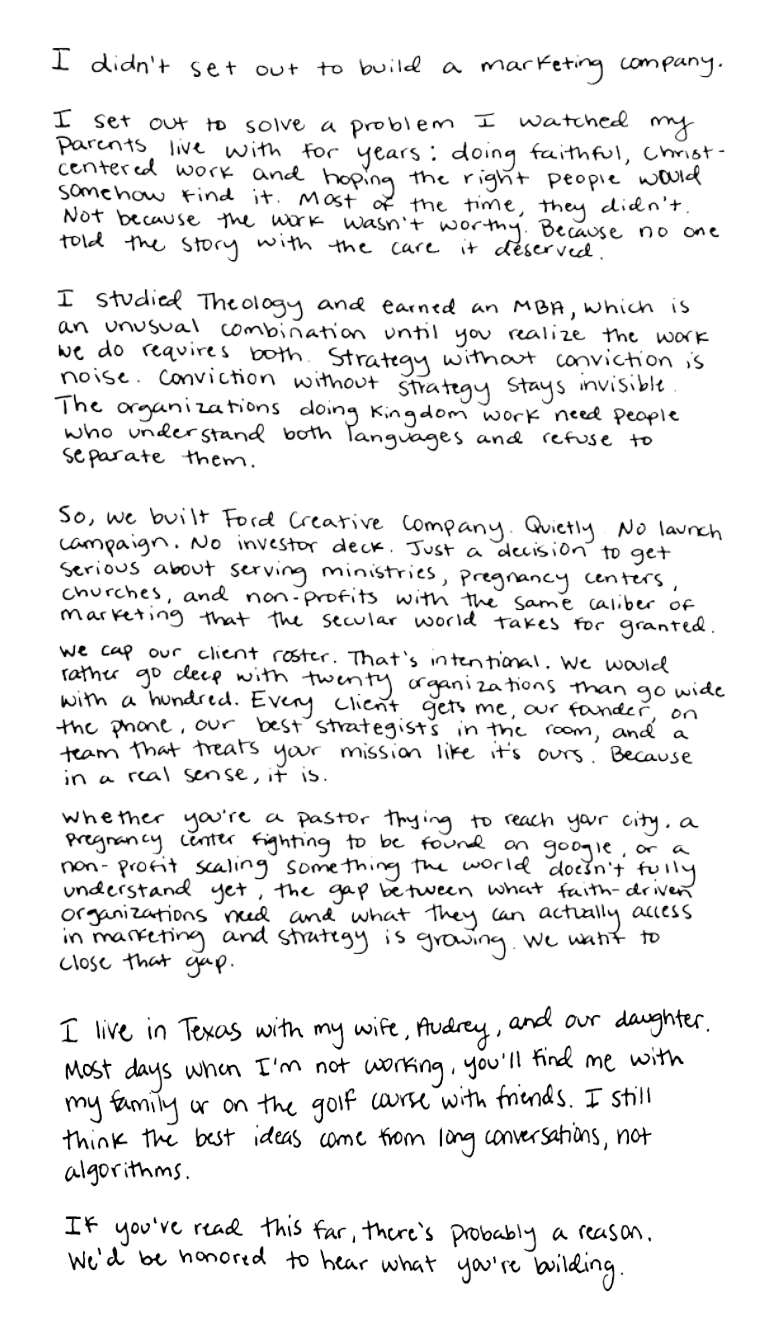 I didn't set out to build a marketing company.
I set out to solve a problem I watched my
parents live with for years: doing faithful, Christ-
centered work and hoping the right people would
somehow find it. Most of the time, they didn't.
Not because the work wasn't worthy. Because no one
told the story with the care it deserved.
I studied Theology and earned an MBA, which is
an unusual combination until you realize the work
we do requires both. Strategy without conviction is
noise. Conviction without strategy stays invisible.
The organizations doing Kingdom work need people
who understand both languages and refuse to
separate them.
So, we built Ford Creative Company. Quietly. No launch
campaign. No investor deck. Just a decision to get
serious about serving ministries, pregnancy centers,
churches, and non-profits with the same caliber of
marketing that the secular world takes for granted.
We cap our client roster. That's intentional. We would
rather go deep with twenty organizations than go wide
with a hundred. Every client gets me, our founder, on
the phone, our best strategists in the room, and a
team that treats your mission like it's ours. Because
in a real sense, it is.
Whether you're a pastor trying to reach your city, a
pregnancy center fighting to be found on google, or a
non-profit scaling something the world doesn't fully
understand yet, the gap between what faith-driven
organizations need and what they can actually access
in marketing and strategy is growing. We want to
close that gap.
I live in Texas with my wife, Audrey, and our daughter.
Most days when I'm not working, you'll find me with
my family or on the golf course with friends. I still
think the best ideas come from long conversations, not
algorithms.
If you've read this far, there's probably a reason.
We'd be honored to hear what you're building.